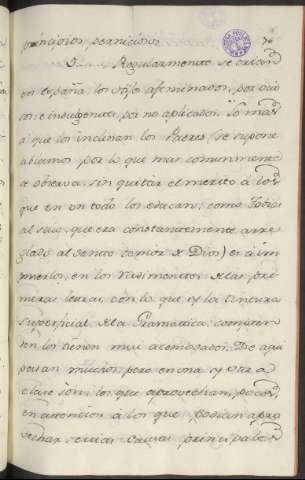 principios perniciosos
Regularmente se crian
en España los hijos afeminados, por ocio
sos: e indulgentes, por no aplicados. Lo mas
á que los inclinan los Padres (se supone
ablamos por lo que mas comunmente
se observa, sin quitar el merito á los
que en un todo los educan; como Tobias
al suio, que era constantemente arre
glado al santo temor de Dios) es á im
ponerlos, en los rudimentos de las pri
meras letras con lo que y la tintura
superficial de la Gramatica, compren
den los tienen mui acomodados. De aqui
pasan muchos, pero en una y otra
clase son, los que aprovechan, pocos,
en atencion á los que podian apro
vechar: varias causas principales